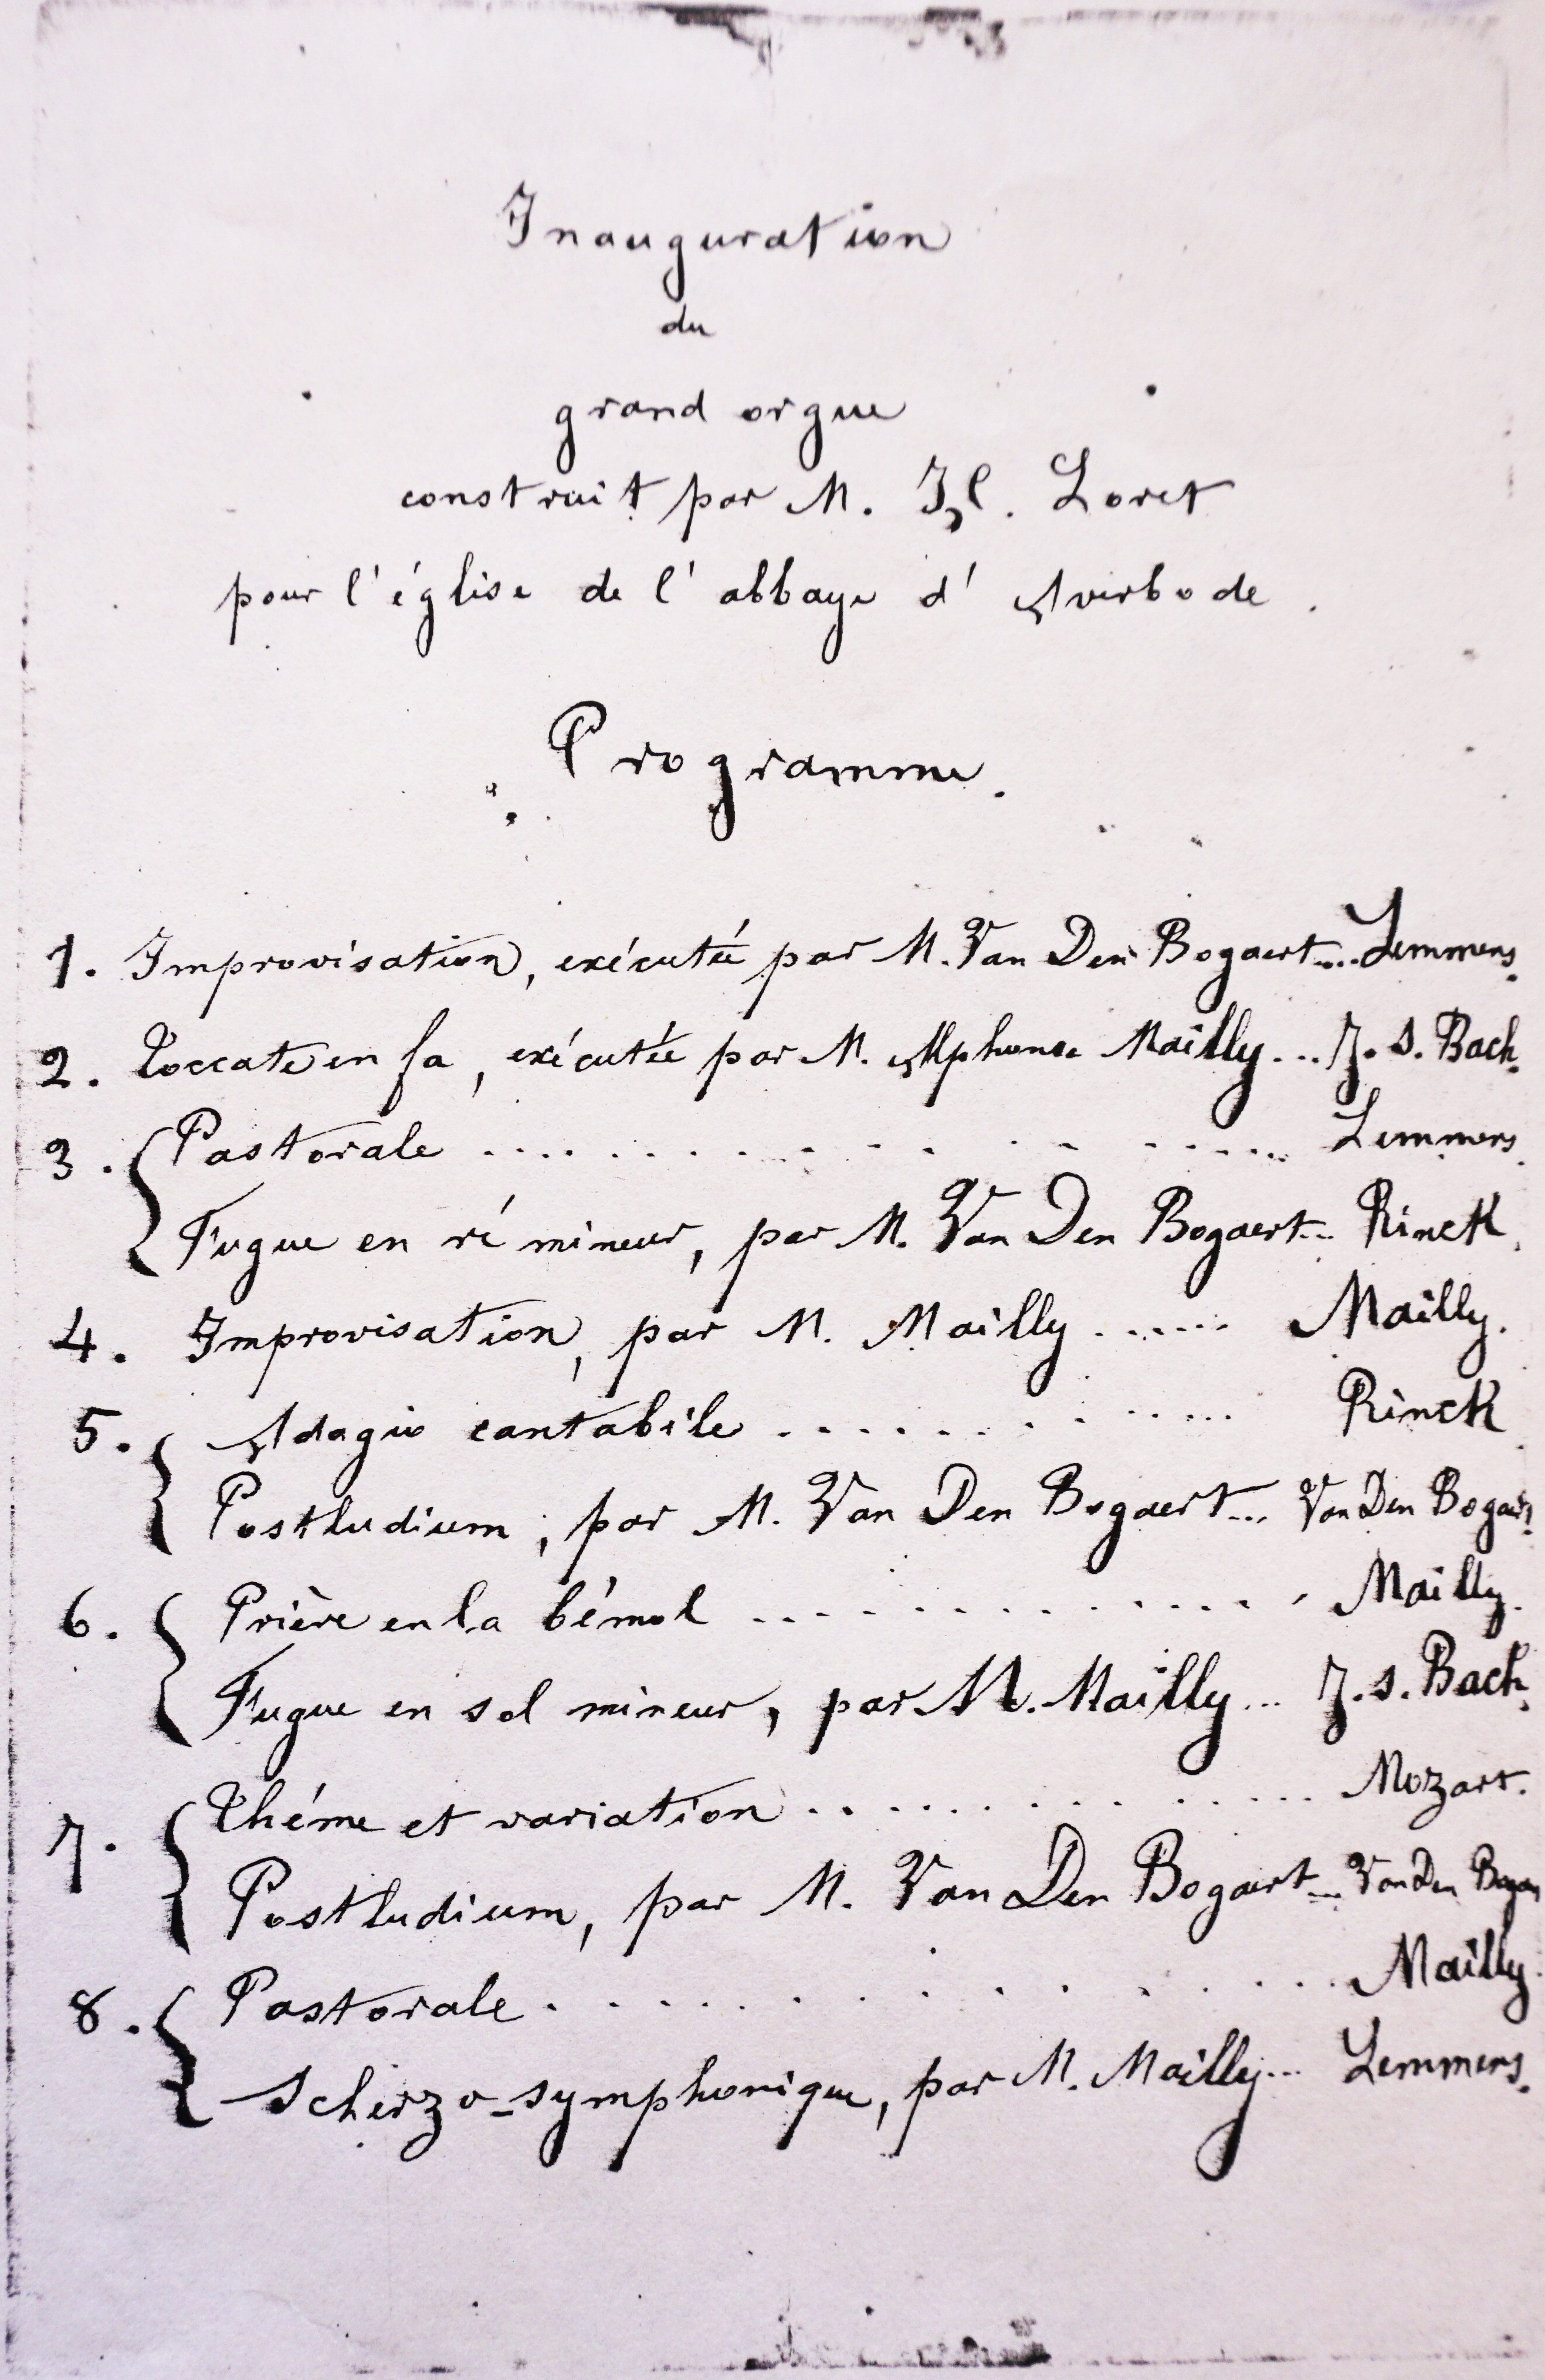 Inauguration
du
grand orgue
construit par M. H. Loret
pour l'église de l'abbaye d'Averbode.
Programme.
1. Improvisation, exécutée par M. Van Den Bogaert... Lemmens.
2. Toccate en fa, exécutée par M. Alphonse Mailly... J. S. Bach.
3. Pastorale .................. Lemmens.
Fugue en ré mineur, par M. Van Den Bogaert... Rinck.
4. Improvisation, par M. Mailly ...... Mailly.
5. Adagio cantabile .............. Rinck.
Postludium, par M. Van Den Bogaert... Van Den Bogaert.
6. Prière en la bémol .............. Mailly.
Fugue en sol mineur, par M. Mailly... J. S. Bach.
7. Théme et variation .............. Mozart.
Postludium, par M. Van Den Bogaert... Van Den Bogaer
8. Pastorale .............. Mailly.
Scherzo-symphonique, par M. Mailly... Lemmens.